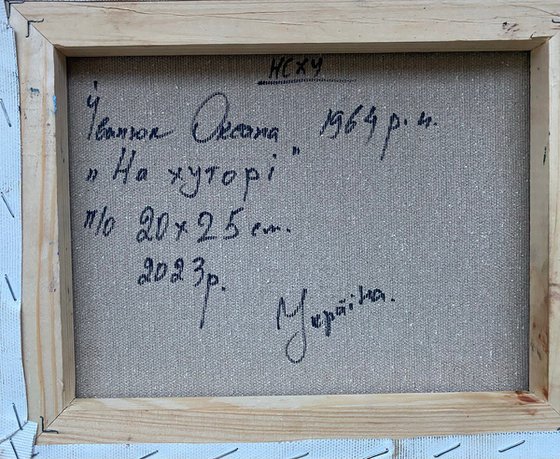 НСХУ
Іванюк Оксана 1964 р.н.
"На хуторі"
п/о 20х25 см.
2023р.
Україна.